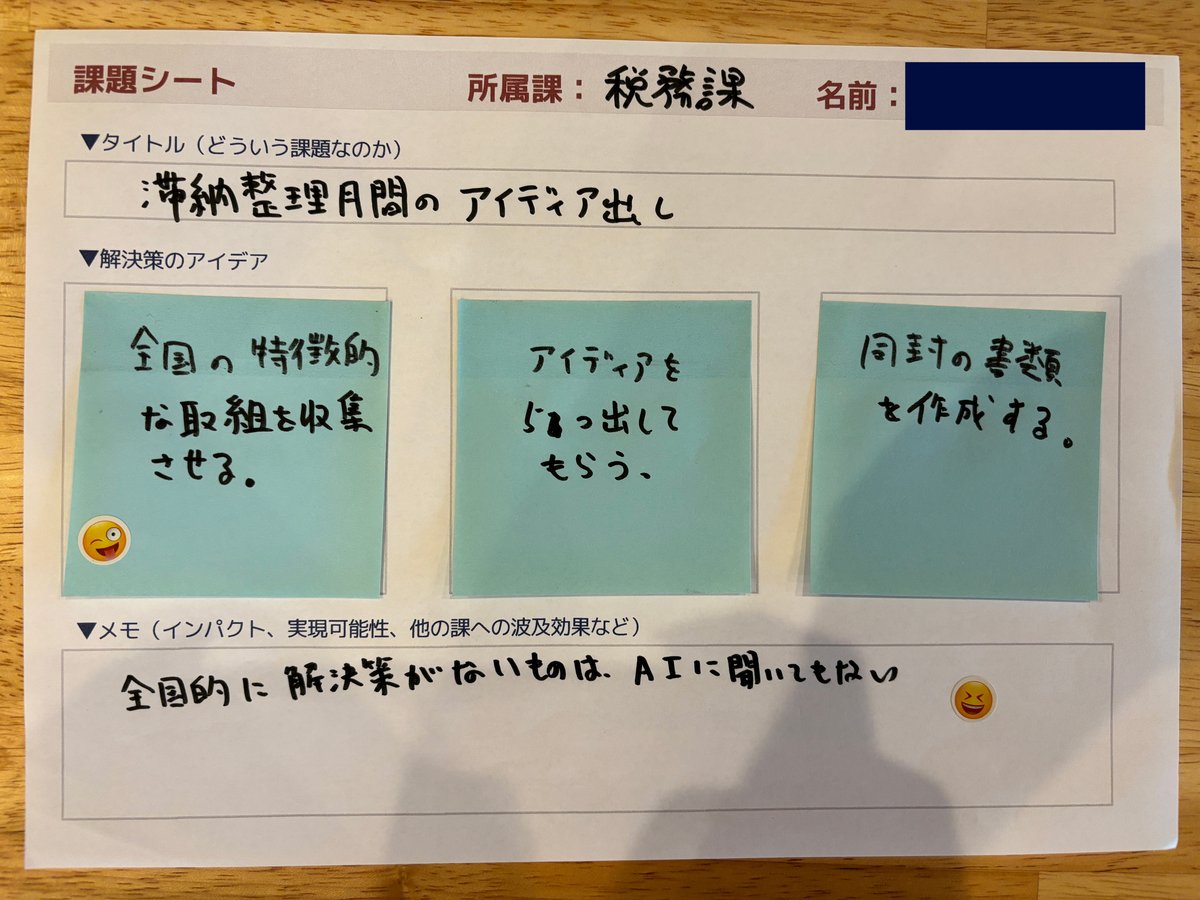 課題シート 所属課： 税務課 名前：
▼タイトル（どういう課題なのか）
滞納整理月間のアイディア出し
▼解決策のアイデア
全国の特徴的
な取組を収集
させる。
アイディアを
5つ出して
もらう、
同封の書類
を作成する。
▼メモ（インパクト、実現可能性、他の課への波及効果など）
全国的に解決策がないものは、AIに聞いてもない